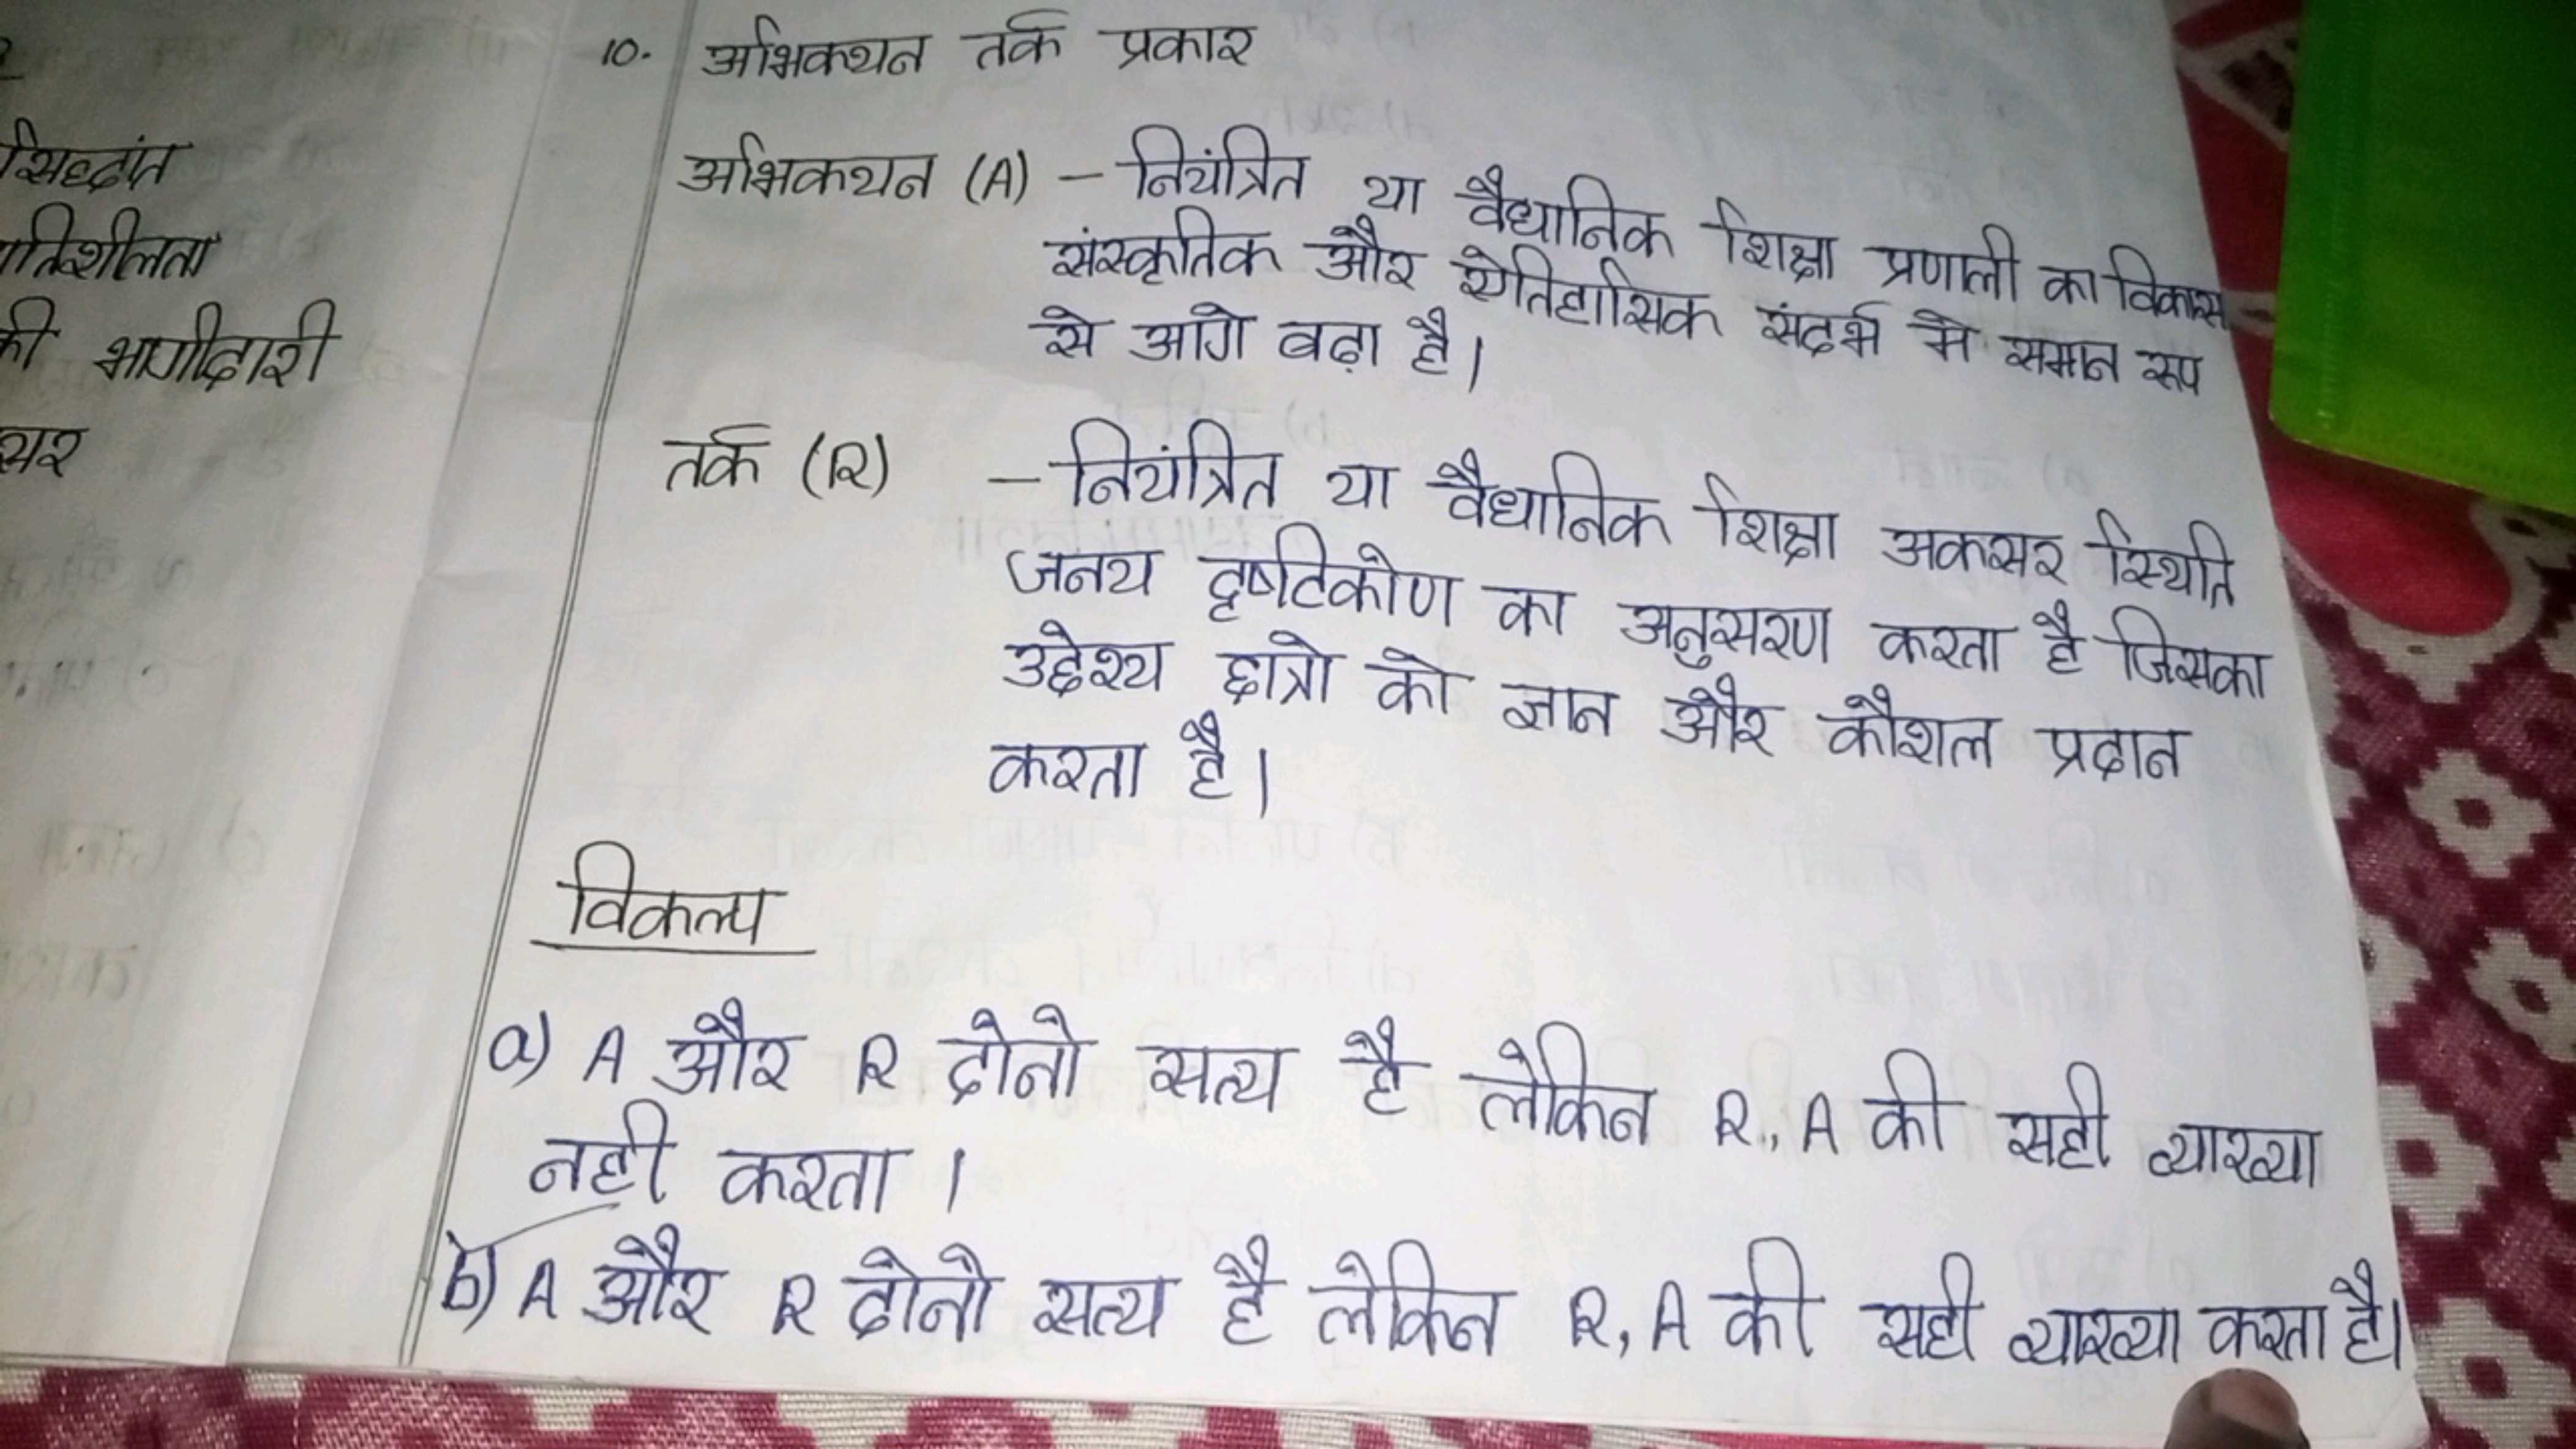 सिद्धांत
की भागीदारी
10. अभिकथन तर्क प्रकार
अभिकथन (A) – नियंत्रित या वैधानिक शिक्षा प्रणाली का विकास
संस्कृतिक और ऐतिहासिक संदर्भ मे समान रूप
से आगे बढ़ा है।
तर्क (R) – नियंत्रित या वैधानिक शिक्षा अकसर स्थिति
जनय दृष्टिकोण का अनुसरण करता है जिसका
उद्देश्य छात्रो को ज्ञान और कौशल प्रदान
करता है।
विकल्प
a) A और R दोनो सत्य है लेकिन R, A की सही व्याख्या
नही करता ।
b) A और R दोनो सत्य है लेकिन R, A की सही व्याख्या करता है।